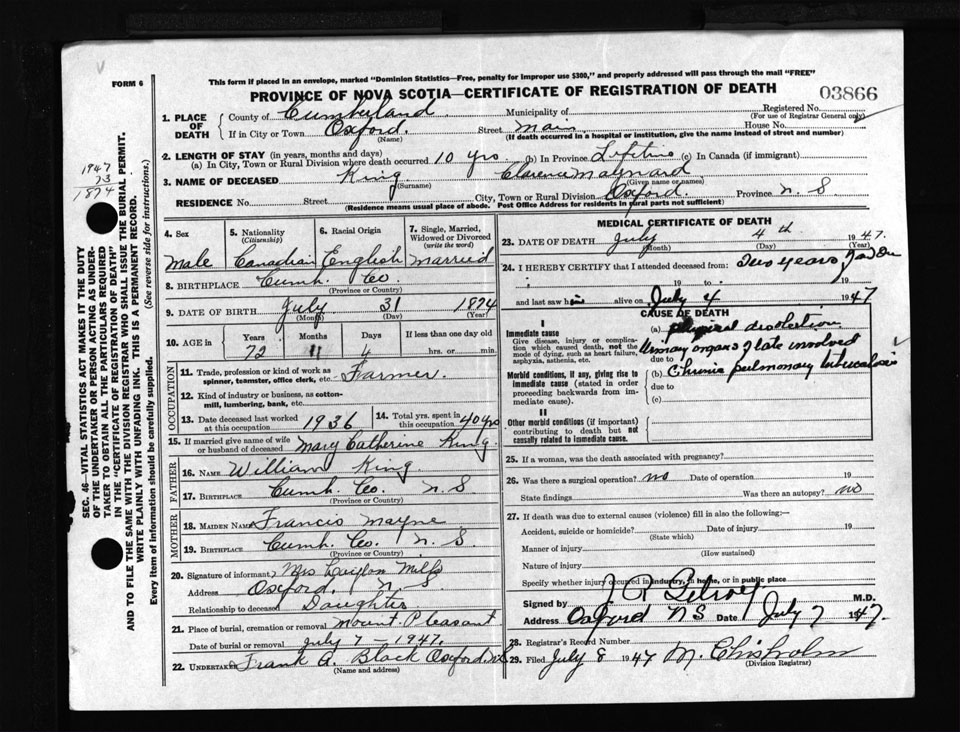 FORM 6
This form if placed in an envelope, marked "Dominion Statistics—Free, penalty for improper use $300," and properly addressed will pass through the mail "FREE"
PROVINCE OF NOVA SCOTIA—CERTIFICATE OF REGISTRATION OF DEATH
03866
1. PLACE OF DEATH
County of Cumberland Municipality of Registered No.
(For use of Registrar General only)
If in City or Town Oxford. Street Main House No.
(Name) (If death occurred in a hospital or institution, give the name instead of street and number)
2. LENGTH OF STAY (in years, months and days)
(a) In City, Town or Rural Division where death occurred 10 yrs (b) In Province Lifetime (c) In Canada (if immigrant)
3. NAME OF DECEASED King Clarence Maynard
(Surname) (Given name or names)
RESIDENCE No. Street City, Town or Rural Division Oxford. Province N. S
(Residence means usual place of abode. Post Office Address for residents in rural parts not sufficient)
1947
73
1874
SEC. 46—VITAL STATISTICS ACT MAKES IT THE DUTY
OF THE UNDERTAKER OR PERSON ACTING AS UNDER-
TAKER TO OBTAIN ALL THE PARTICULARS REQUIRED
IN THE "CERTIFICATE OF REGISTRATION OF DEATH"
AND TO FILE THE SAME WITH THE DIVISION REGISTRAR WHO SHALL ISSUE THE BURIAL PERMIT.
WRITE PLAINLY WITH UNFADING INK. THIS IS A PERMANENT RECORD.
Every item of information should be carefully supplied. (See reverse side for instructions.)
4. Sex Male
5. Nationality (Citizenship) Canadian
6. Racial Origin English
7. Single, Married, Widowed or Divorced (write the word) Married
8. BIRTHPLACE Cumb. Co
(Province or Country)
9. DATE OF BIRTH July 31 1874
(Month) (Day) (Year)
10. AGE in Years Months Days If less than one day old
72 11 4 hrs. or min.
OCCUPATION
11. Trade, profession or kind of work as spinner, teamster, office clerk, etc. Farmer.
12. Kind of industry or business, as cotton-mill, lumbering, bank, etc.
13. Date deceased last worked at this occupation 1936
14. Total yrs. spent in this occupation 40 yrs
15. If married give name of wife or husband of deceased Mary Catherine King
FATHER
16. NAME William King.
17. BIRTHPLACE Cumb. Co. N. S
(Province or Country)
MOTHER
18. MAIDEN NAME Francis Mayne
19. BIRTHPLACE Cumb. Co. N. S.
(Province or Country)
20. Signature of informant Mrs Mills
Address Oxford. N. S
Relationship to deceased Daughter
21. Place of burial, cremation or removal Mount Pleasant
Date of burial or removal July 7 — 1947.
22. UNDERTAKER Frank A. Black Oxford N.S.
(Name and address)
MEDICAL CERTIFICATE OF DEATH
23. DATE OF DEATH July 4th 1947.
(Month) (Day) (Year)
24. I HEREBY CERTIFY that I attended deceased from: Two years
19 to 19
and last saw him alive on July 4 1947
CAUSE OF DEATH
I
Immediate cause
Give disease, injury or complication which caused death, not the mode of dying, such as heart failure, asphyxia, asthenia, etc.
(a) physical
due to Urinary organs of late involved
Morbid conditions, if any, giving rise to immediate cause (stated in order proceeding backwards from immediate cause).
(b) Chronic pulmonary tuberculosis
due to
(c)
II
Other morbid conditions (if important) contributing to death but not causally related to immediate cause.
25. If a woman, was the death associated with pregnancy?
26. Was there a surgical operation? no Date of operation 19
State findings Was there an autopsy? no
27. If death was due to external causes (violence) fill in also the following:—
Accident, suicide or homicide? Date of injury 19
(State which)
Manner of injury
(How sustained)
Nature of injury
Specify whether injury occurred in industry, in home, or in public place
Signed by M.D.
Address Oxford NS Date July 7 1947.
28. Registrar's Record Number
29. Filed July 8 1947 M. Chisholm
(Division Registrar)